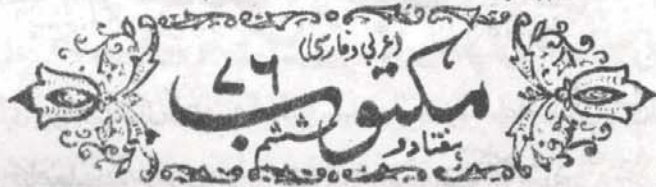 (عربی و فارسی)
مکتوب ۷۶
ہفتاد و ششم